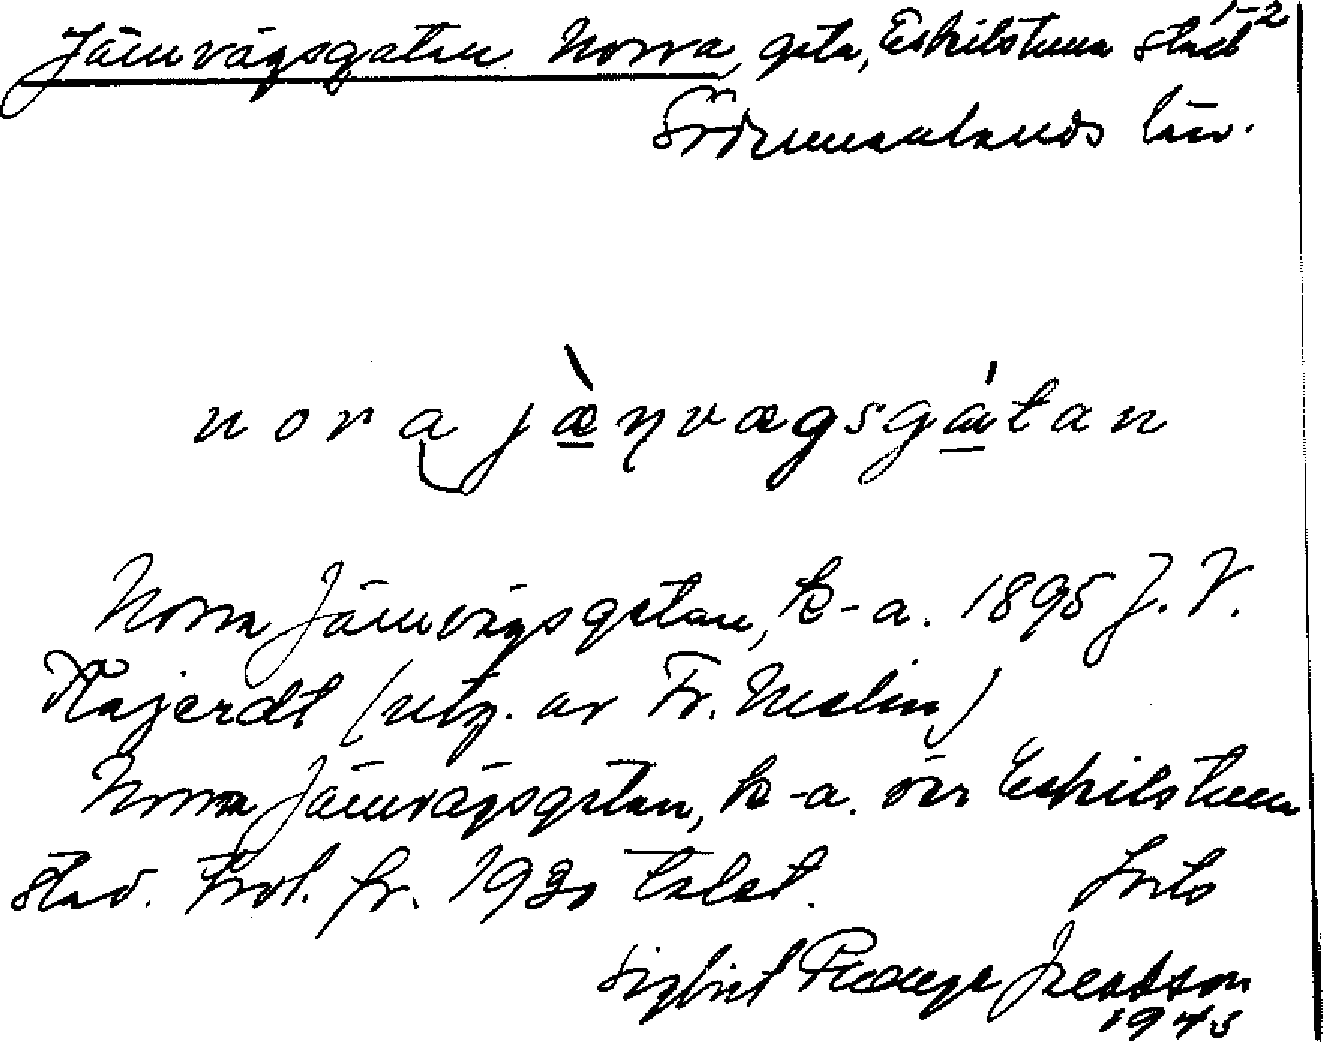 Järnvägsgatan Norra, gata, Eskilstuna stad 1-2
Södermanlands län.
nora jæ̀ṇvægsgátan
Norra Järnvägsgatan, k-a. 1895 J. V.
Kajerdt (utg. av Fr. Malin)
Norra Järnvägsgatan, k-a. över Eskilstuna
stad. Trol. fr. 1930 talet. Forts
Sigbrit Plaenge Jacobson
1945